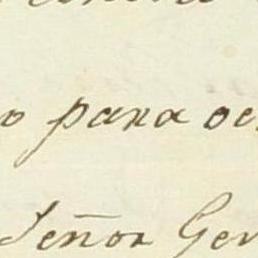 o para oc
Señor Gen